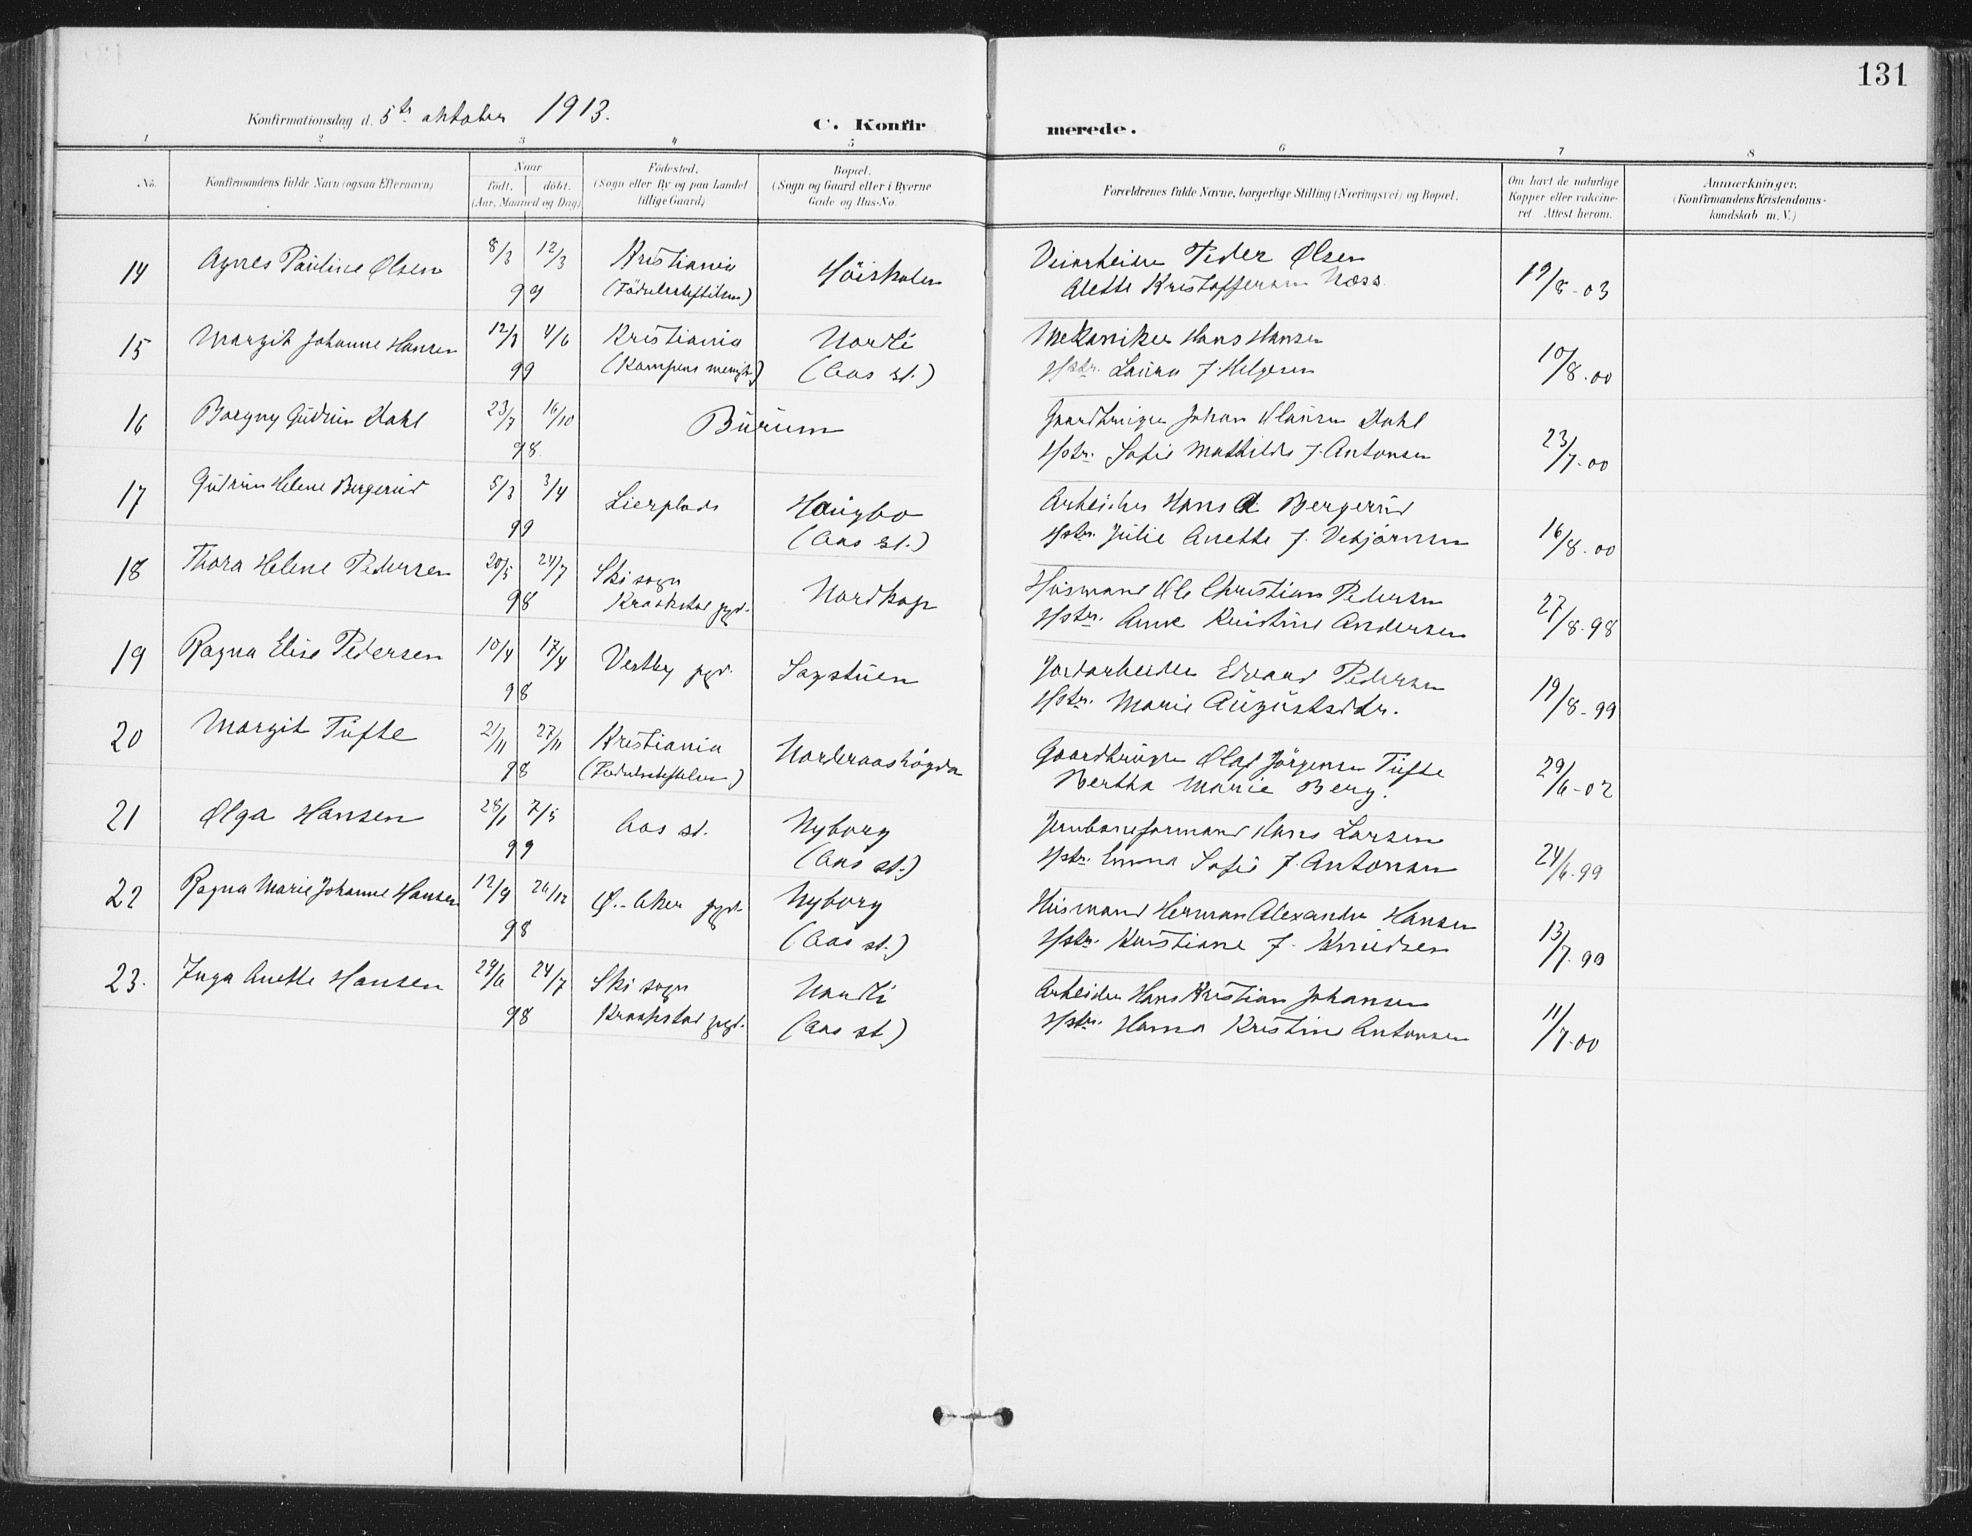 131
Konfirmationsdag d. 5te oktober 1913.
C. Konfirmerede.
1 2 3 4 5 6 7 8
No.
Konfirmandens fulde Navn (ogsaa Efternavn)
Naar
født. døbt.
(Aar, Maaned og Dag)
Fødested.
(Sogn eller By og paa Landet
tillige Gaard)
Bopæl.
(Sogn og Gaard eller i Byerne
Gade og Hus-No.
Forældrenes fulde Navne, borgerlige Stilling (Næringsvei) og Bopæl.
Om havt de naturlige
Kopper eller vakcine-
ret Attest herom.
Anmærkninger.
(Konfirmandens Kristendoms-
kundskab m. V.)
14 Agnes Pauline Olsen 8/3 12/3 Kristiania Høiskolen Veiarbeider Peder Olsen 19/8-03
99 (Fødselsstiftelsen) Alette Kristoffersen Næss
15 Margit Johanne Hansen 12/3 4/6 Kristiania Nordli Mekaniker Hans Hansen 10/8.00
99 (Kampens menigh.) (Aas st.) Hstr. Laura f. Helgesen
16 Borgny Gudrun Dahl 23/7 16/10 Burum Gaardbruger Johan Klausen Dahl 23/7-00
98 Hstr. Sofie Mathilde f. Antonsen
17 Gudrun Helene Bergerud 5/3 3/4 Lierplads Haugbo Arbeider Hans A Bergerud 16/8-00
99 (Aas st.) Hstr. Julie Anette f. Vebjørnsen
18 Thora Helene Pedersen 20/5 24/7 Ski sogn Nordkap Husmand Ole Christian Pedersen 27/8-98
98 Kraakstad pgd. Hstr. Anne Kristine Andersen
19 Ragna Elise Pedersen 10/4 17/4 Vestby pgd. Sagstuen Jordarbeider Edvard Pedersen 19/8-99
98 Hstr. Marie Augustsdtr.
20 Margit Tufte 21/11 27/11 Kristiania Norderaashøgda Gaardbruger Olaf Jørgensen Tufte 29/6-02
98 (Fødselsstiftelsen) Bertha Marie Berg.
21 Olga Hansen 28/1 7/5 Aas st. Nyborg Jernbaneformand Hans Larsen 24/6.99
99 (Aas st.) Hstr. Emma Sofie f. Antonsen
22 Ragna Marie Johanne Hansen 12/9 26/12 Ø.-Aker pgd. Nyborg Husmand Herman Alexander Hansen 13/7.99
98 (Aas st.) Hstr. Kristiane f. Knudsen
23. Inga Anette Hansen 29/6 24/7 Ski sogn Nordli Arbeider Hans Kristian Johansen 11/7.00
98 Kraakstad pgd. (Aas st.) Hstr. Hanna Kristine Antonsen